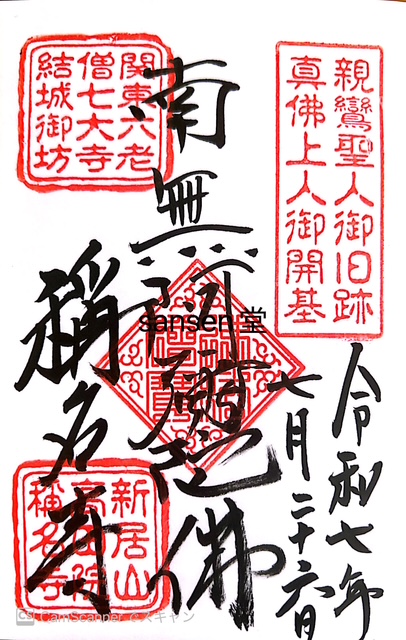 親鸞聖人御旧跡
真佛上人御開基
令和七年
七月二十六日
関東六老
僧七大寺
結城御坊
南無阿彌陀佛
sansen 堂
稱名寺
新居山
稱名寺
CS CamScanner でスキャン